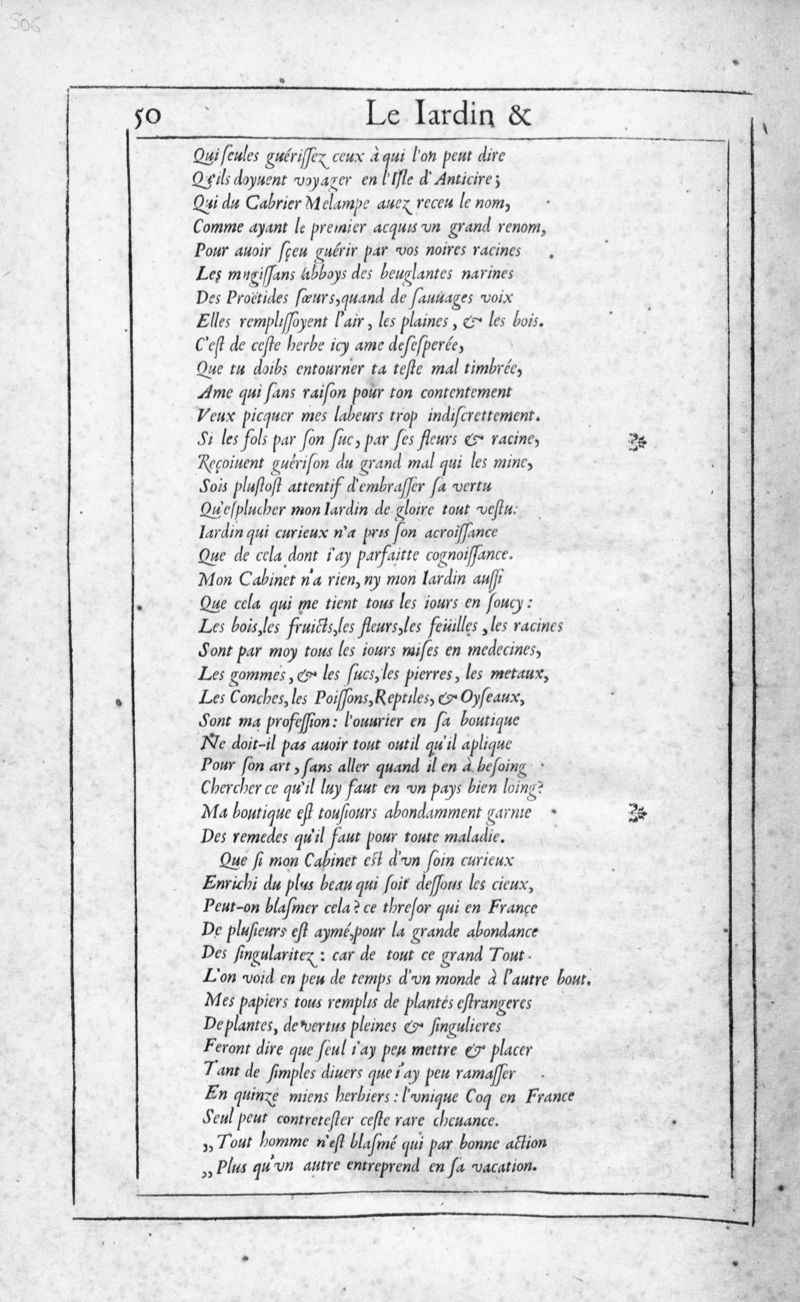 506
50 Le Iardin &
Qui ſeules guériſſez ceux à qui l'on peut dire
Qu'ils doyuent voyager en l'Iſle d'Anticire;
Qui du Cabrier Melampe auez receu le nom,
Comme ayant le premier acquis vn grand renom,
Pour auoir ſçeu guérir par vos noires racines
Les mugiſſans abboys des beuglantes narines
Des Proëtides ſœurs, quand de ſauuages voix
Elles rempliſſoyent l'air, les plaines, & les bois.
C'eſt de ceſte herbe icy ame deſeſperée,
Que tu doibs entourner ta teſte mal timbrée,
Ame qui ſans raiſon pour ton contentement
Veux picquer mes labeurs trop indiſcrettement.
Si les fols par ſon ſuc, par ſes fleurs & racine,
Reçoiuent guériſon du grand mal qui les mine,
Sois pluſtoſt attentif d'embraſſer ſa vertu
Qu'eſplucher mon Iardin de gloire tout veſtu:
Iardin qui curieux n'a pris ſon acroiſſance
Que de cela dont i'ay parfaitte cognoiſſance.
Mon Cabinet n'a rien, ny mon Iardin auſſi
Que cela qui me tient tous les iours en ſoucy:
Les bois, les fruicts, les fleurs, les feüilles, les racines
Sont par moy tous les iours miſes en medecines,
Les gommes, & les ſucs, les pierres, les metaux,
Les Conches, les Poiſſons, Reptiles, & Oyſeaux,
Sont ma profeſſion: l'ouurier en ſa boutique
Ne doit-il pas auoir tout outil qu'il aplique
Pour ſon art, ſans aller quand il en à beſoing
Chercher ce qu'il luy faut en vn pays bien loing?
Ma boutique eſt touſiours abondamment garnie
Des remedes qu'il faut pour toute maladie.
Que ſi mon Cabinet eſt d'vn ſoin curieux
Enrichi du plus beau qui ſoit deſſous les cieux,
Peut-on blaſmer cela? ce threſor qui en France
De pluſieurs eſt aymé, pour la grande abondance
Des ſingularitez: car de tout ce grand Tout
L'on void en peu de temps d'vn monde à l'autre bout.
Mes papiers tous remplis de plantés eſtrangeres
De plantes, de vertus pleines & ſingulieres
Feront dire que ſeul i'ay peu mettre & placer
Tant de ſimples diuers que i'ay peu ramaſſer
En quinze miens herbiers: l'vnique Coq en France
Seul peut conteteſter ceſte rare cheuance.
„ Tout homme n'eſt blaſmé qui par bonne action
„ Plus qu'vn autre entreprend en ſa vacation.